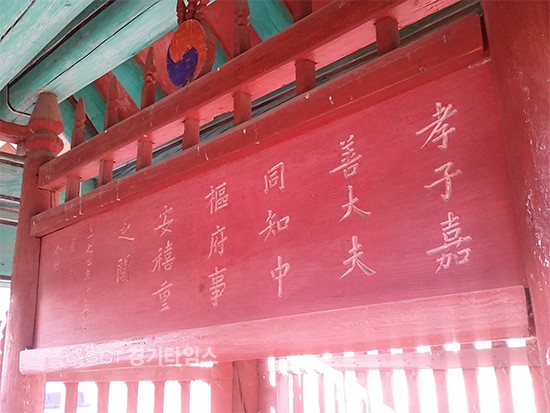 孝子嘉
善大夫
同知中
樞府事
安禧重
之閭
경기타임스